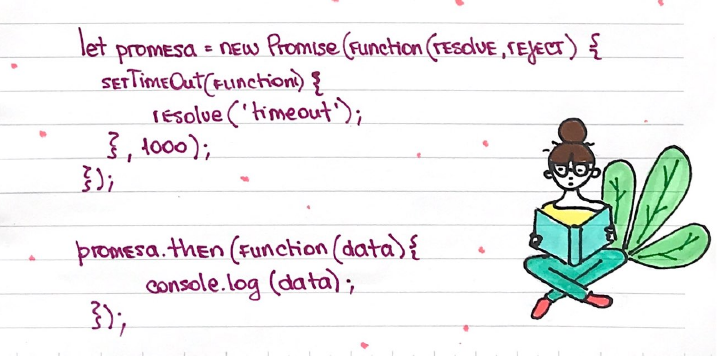 let promesa = new Promise(function(resolve, reject) {
setTimeOut(function() {
resolve('timeout');
}, 1000);
});
promesa.then(function(data){
console.log(data);
});